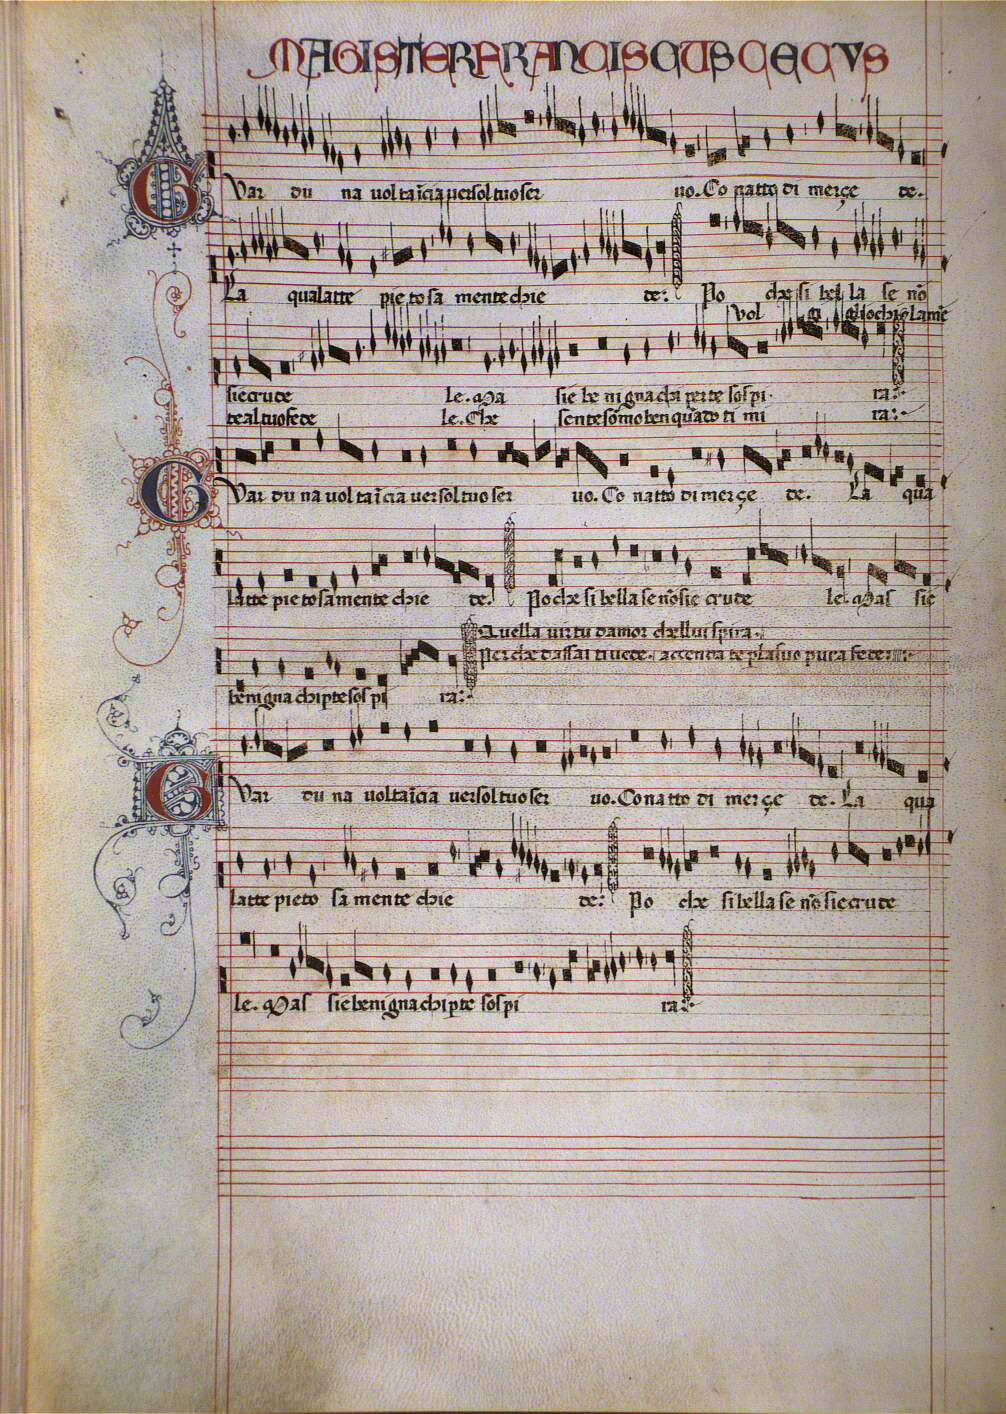 MAGISTER FRANCISCUS CECVS
GVar du na vol ta īcia versol tuo ser vo. Co natto di merçe de.
La qualatte pie to sa mente chie de: Po che si bel la se nō
Vol gi gliochi
sie crude le. Ma sie be ni gna chi per te sos pi ra:
te al tuo fe de le. Che sente sōmo ben quādo ti mi ra:
GVar du na vol ta ī cia ver sol tuo ser vo. Co natto di merçe de. La qua
latte pie to sa mente chie de. Po che si bella se nō sie crude le. Mas sie
Quella virtu damor che llui spira.
Per che dassai ti vede. accenta te pura fede
benigna chi p te sos pi ra:
GVar du na voltaīcia versol tuo ser vo. Co na tto di merçe de. La qua
latte pieto sa mente chie de: Po che si bella se nō sie crude
le. Mas sie benigna chi p te sos pi ra: